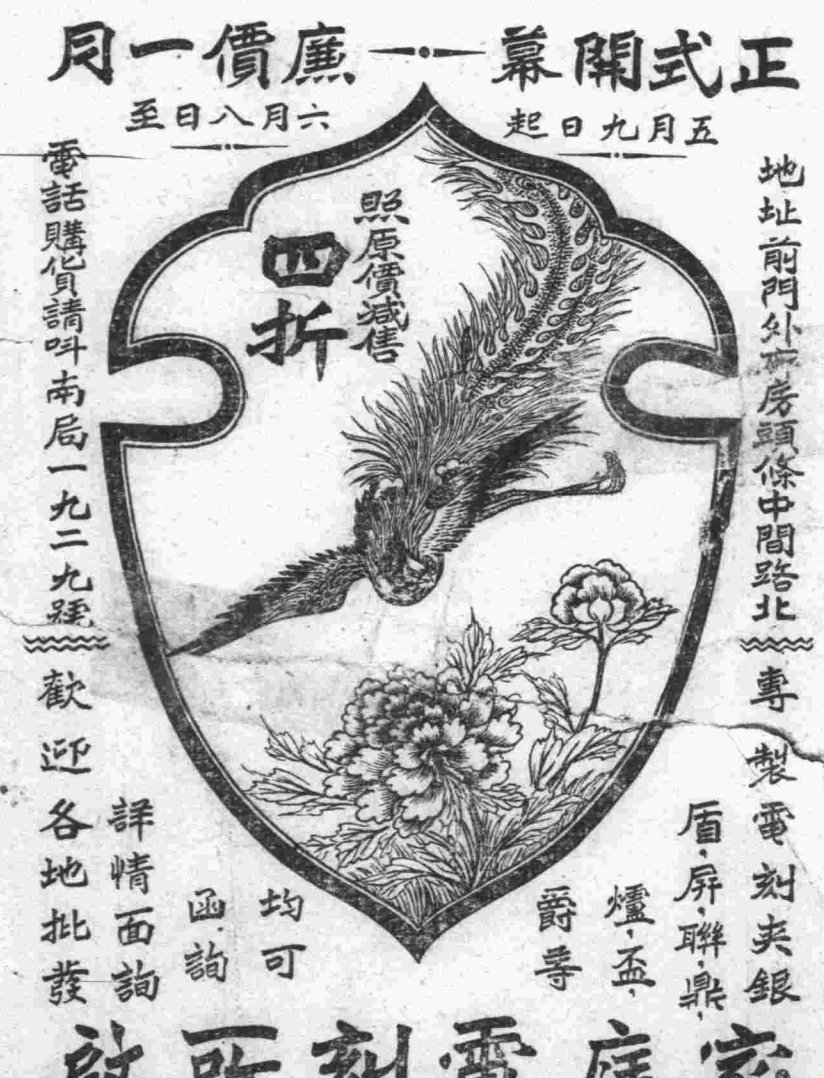 正式開幕
廉價一月
五月九日起
六月八日至
地址前門外廊房頭條中間路北
專製電刻夾銀
盾，屏，聯，鼎，
爐，盃，
爵等
照原價減售
四折
均可
函詢
詳情面詢
歡迎各地批發
電話購貨請呌南局一九二九號
家庭電刻所啟